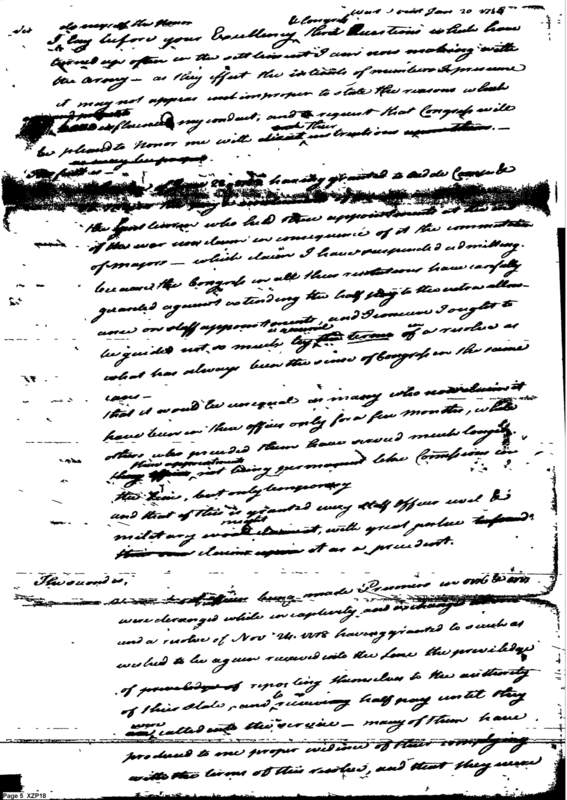 & Congress
I lay before your Excellency three Questions which have
turned up often in the settlement I am now making with
the army — as they effect the interests of numbers I presume
it may not appear improper to state the reasons which
influenced my conduct, and request that Congress will
be pleased to honor me with their instructions
The first is
having granted to
the Gentlemen who held these appointments at the end
of the war now claim in consequence of it the commutation
of majors — which claim I have suspended admitting
because the Congress in all their resolutions have carefully
guarded against extending the half pay to the extra allow-
ance on staff appointments, and I conceive I ought to
be guided not so much by the terms of a resolve as
what has always been the sense of Congress in the same
case —
that it would be unequal as many who now claim it
have been in their offices only for a few months, while
others who preceded them have served much longer
their appointments
not being permanent like Commissions in
the line, but only temporary
and that if this is granted every staff officer civil &
military might, with great justice
claim it as a precedent.
The second is,
being made Prisoners
were deranged while in captivity and exchanged
and a resolve of Nov 24. 1778 having granted to such as
wished to be again received into the Line the priviledge
of reporting themselves to the authority
of their State, and to receiving half pay until they
were called into the service — many of them have
produced to me proper evidence of their complying
with the terms of this resolve, and that they were
Page 5 XZP18